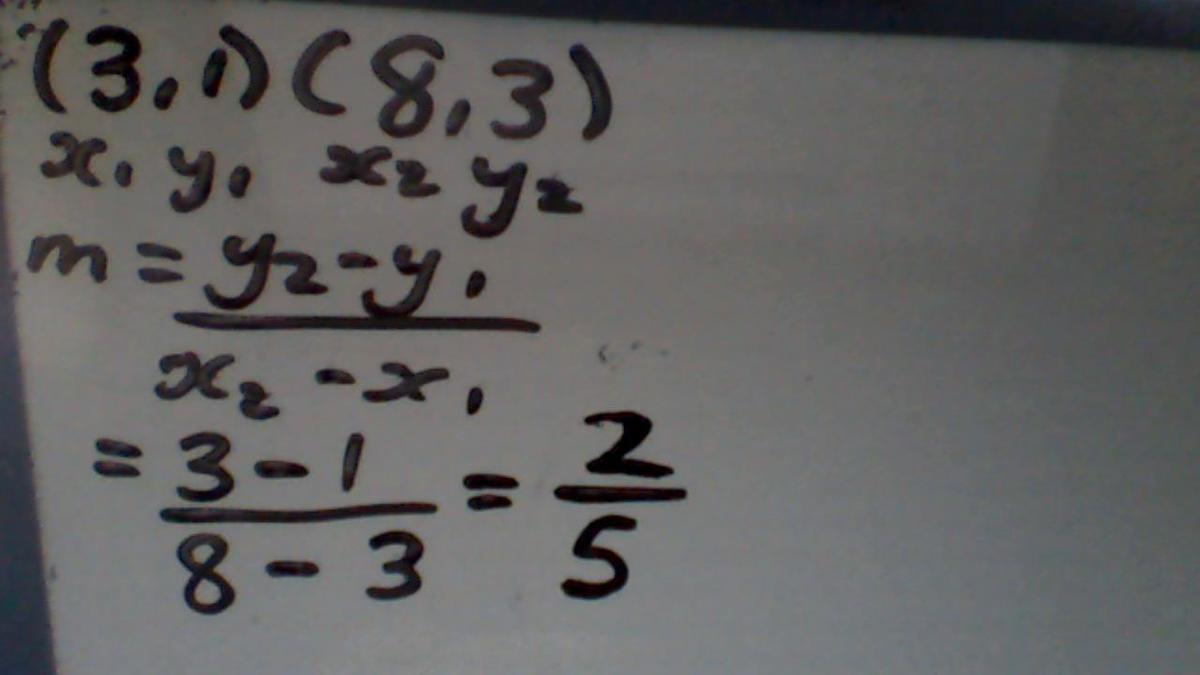 (3,1) (8,3)
x₁ y₁ x₂ y₂
m = y₂-y₁
x₂ - x₁
= 3-1 = 2
8 - 3 5